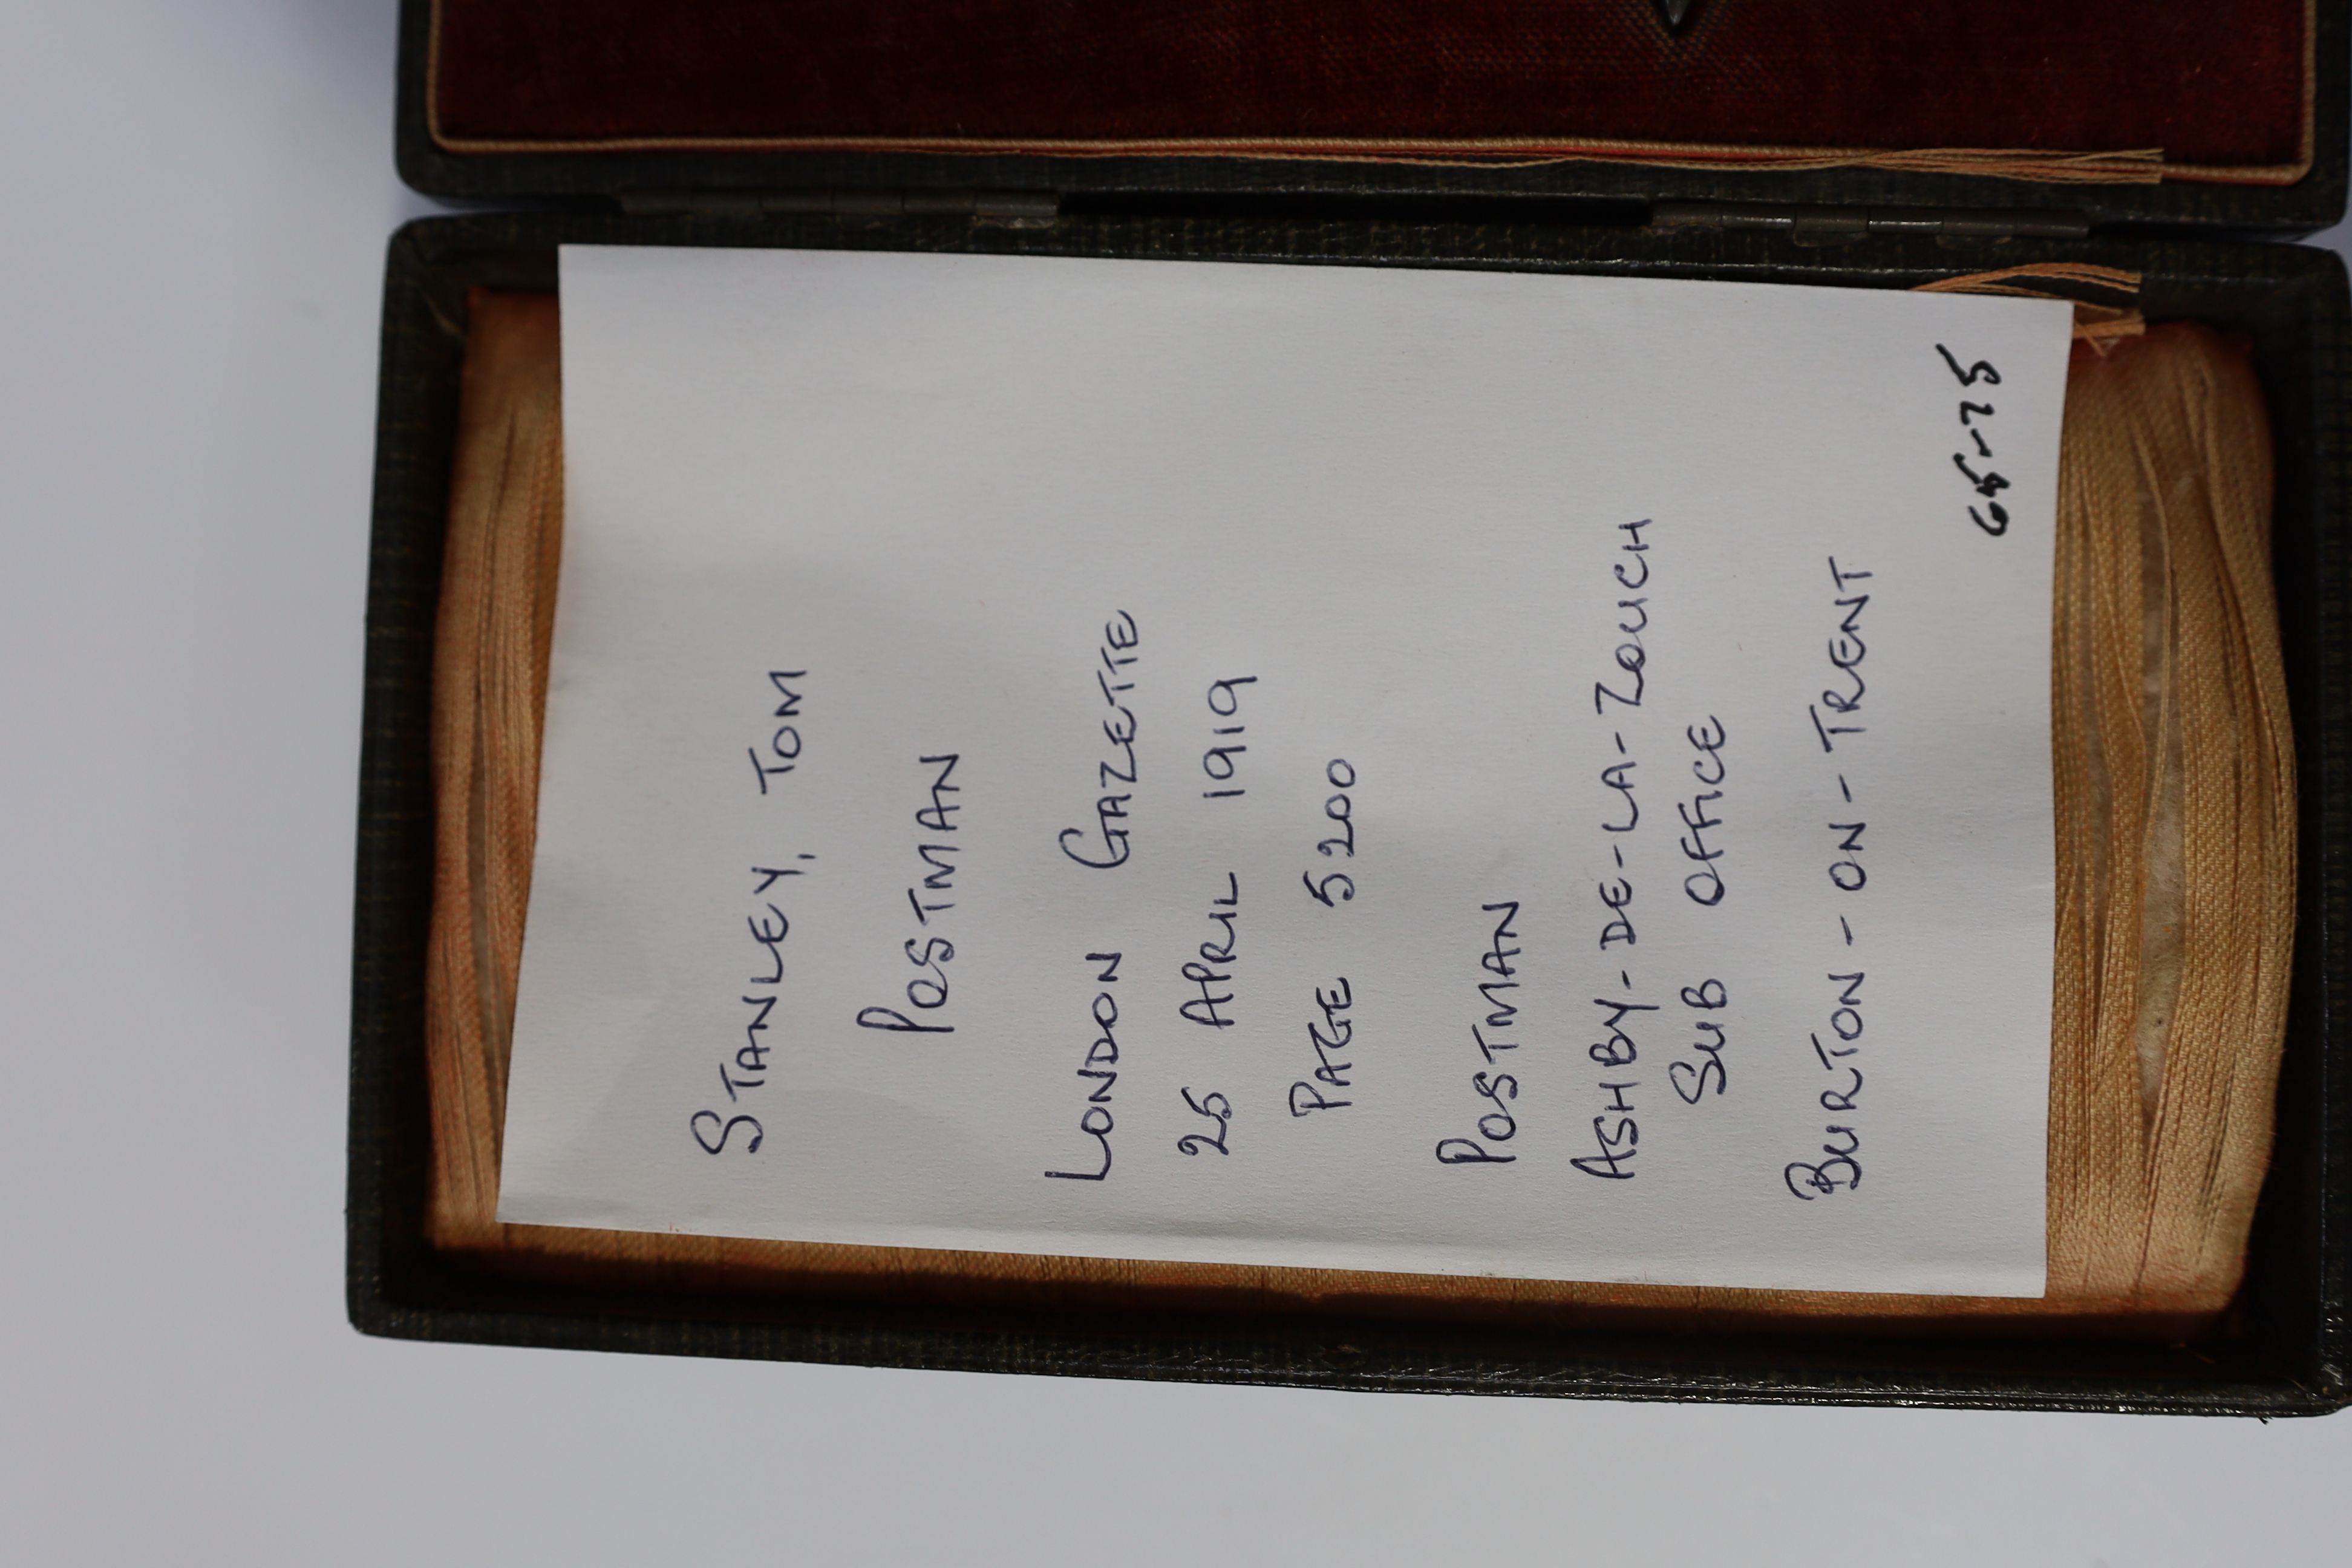 STANLEY, TOM
POSTMAN
LONDON GAZETTE
25 APRIL 1919
PAGE 5200
POSTMAN
ASHBY-DE-LA-ZOUCH
SUB OFFICE
BURTON-ON-TRENT